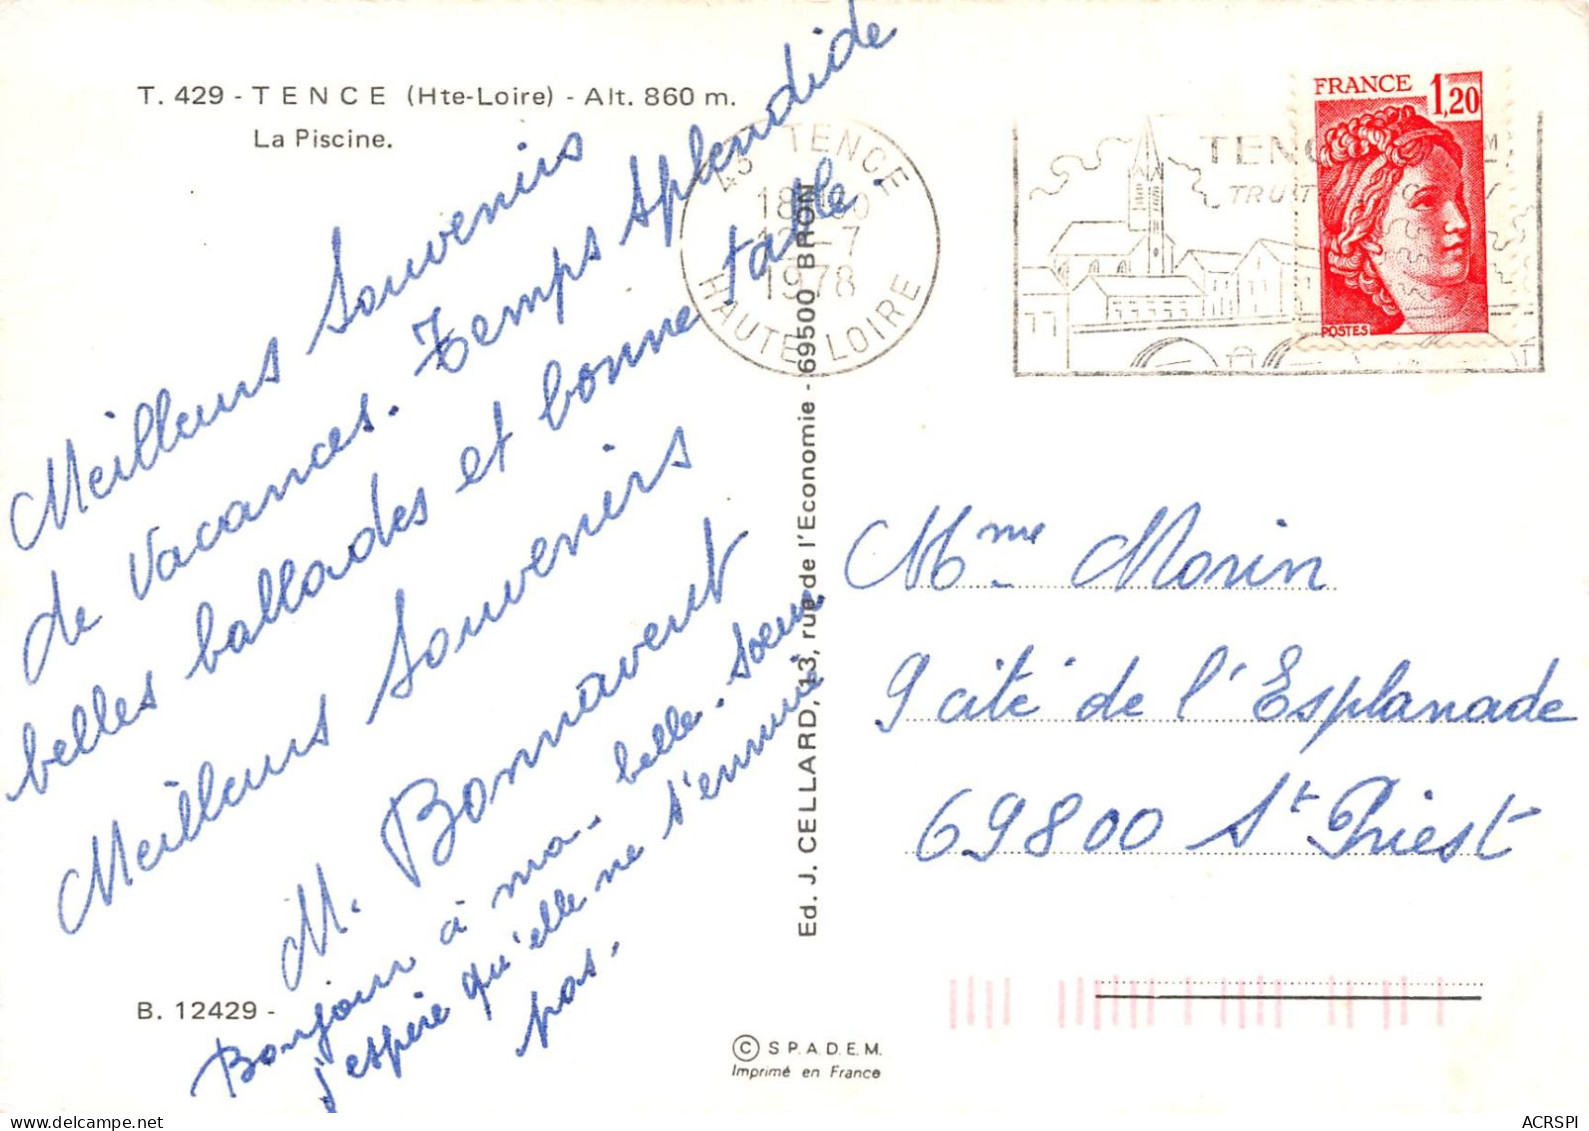 T. 429 - TENCE (Hte-Loire) - Alt. 860 m.
La Piscine.
Meilleurs Souvenirs
de Vacances. Temps splendide
belles ballades et bonne table.
Meilleurs Souvenirs
M. Bonnavent
Bonjour à ma belle-soeur
j'espère qu'elle ne s'ennuie
pas.
B. 12429 -
Ed. J. CELLARD, 13, rue de l'Economie - 69500 BRON
© S.P.A.D.E.M.
Imprimé en France
43 TENCE
18
12 - 7
1978
HAUTE LOIRE
FRANCE 1,20
POSTES
Mme Morin
9 cité de l'Esplanade
69800 St Priest
ACRSPI